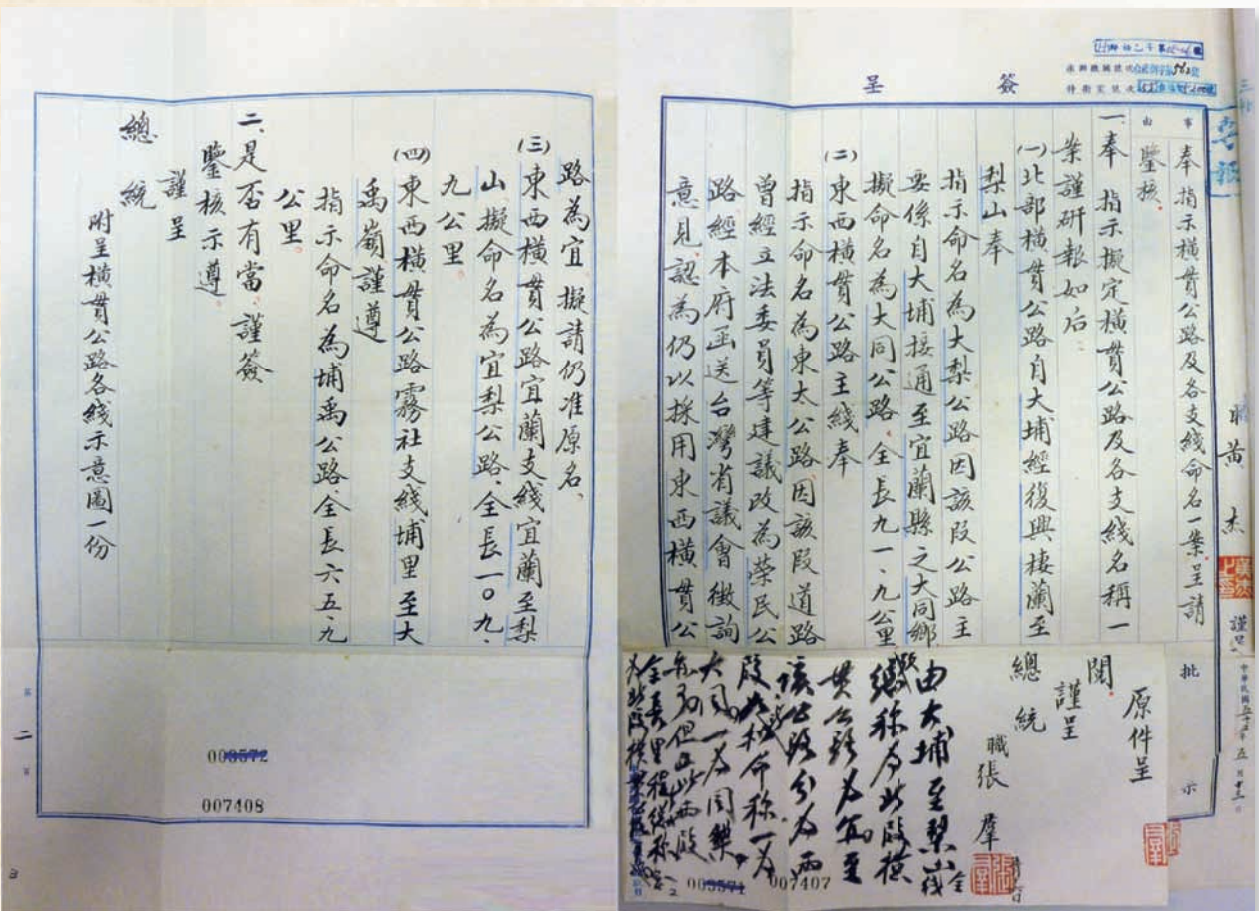 簽呈
事由
奉 指示橫貫公路及各支綫命名一案呈請
鑒核。
一、奉 指示擬定橫貫公路及各支綫名稱一
案謹研報如后:
(一)北部橫貫公路自大埔經復興棲蘭至
梨山奉
指示命名為大梨公路因該段公路主
要係自大埔接通至宜蘭縣之大同鄉
擬命名為大同公路、全長九一、九公里
(二)東西橫貫公路主綫奉
指示命名為東太公路、因該段道路
曾經立法委員等建議改為榮民公
路經本府函送台灣省議會徵詢
意見、認為仍以採用東西橫貫公
職黃杰
謹呈
批示
原件呈
閱。
謹呈
總統
職張羣
由大埔至梨山全綫
總稱為北段橫
貫公路為宜至
該公路分為兩
大同一為同樂
007407
路為宜、擬請仍准原名、
(三)東西橫貫公路宜蘭支綫宜蘭至梨
山、擬命名為宜梨公路、全長一〇九、
九公里。
(四)東西橫貫公路霧社支綫埔里至大
禹嶺謹遵
指示命名為埔禹公路、全長六五、九
公里。
二、是否有當、謹簽
鑒核示遵。
謹呈
總統
附呈橫貫公路各綫示意圖一份
003572
007408
第二頁
3